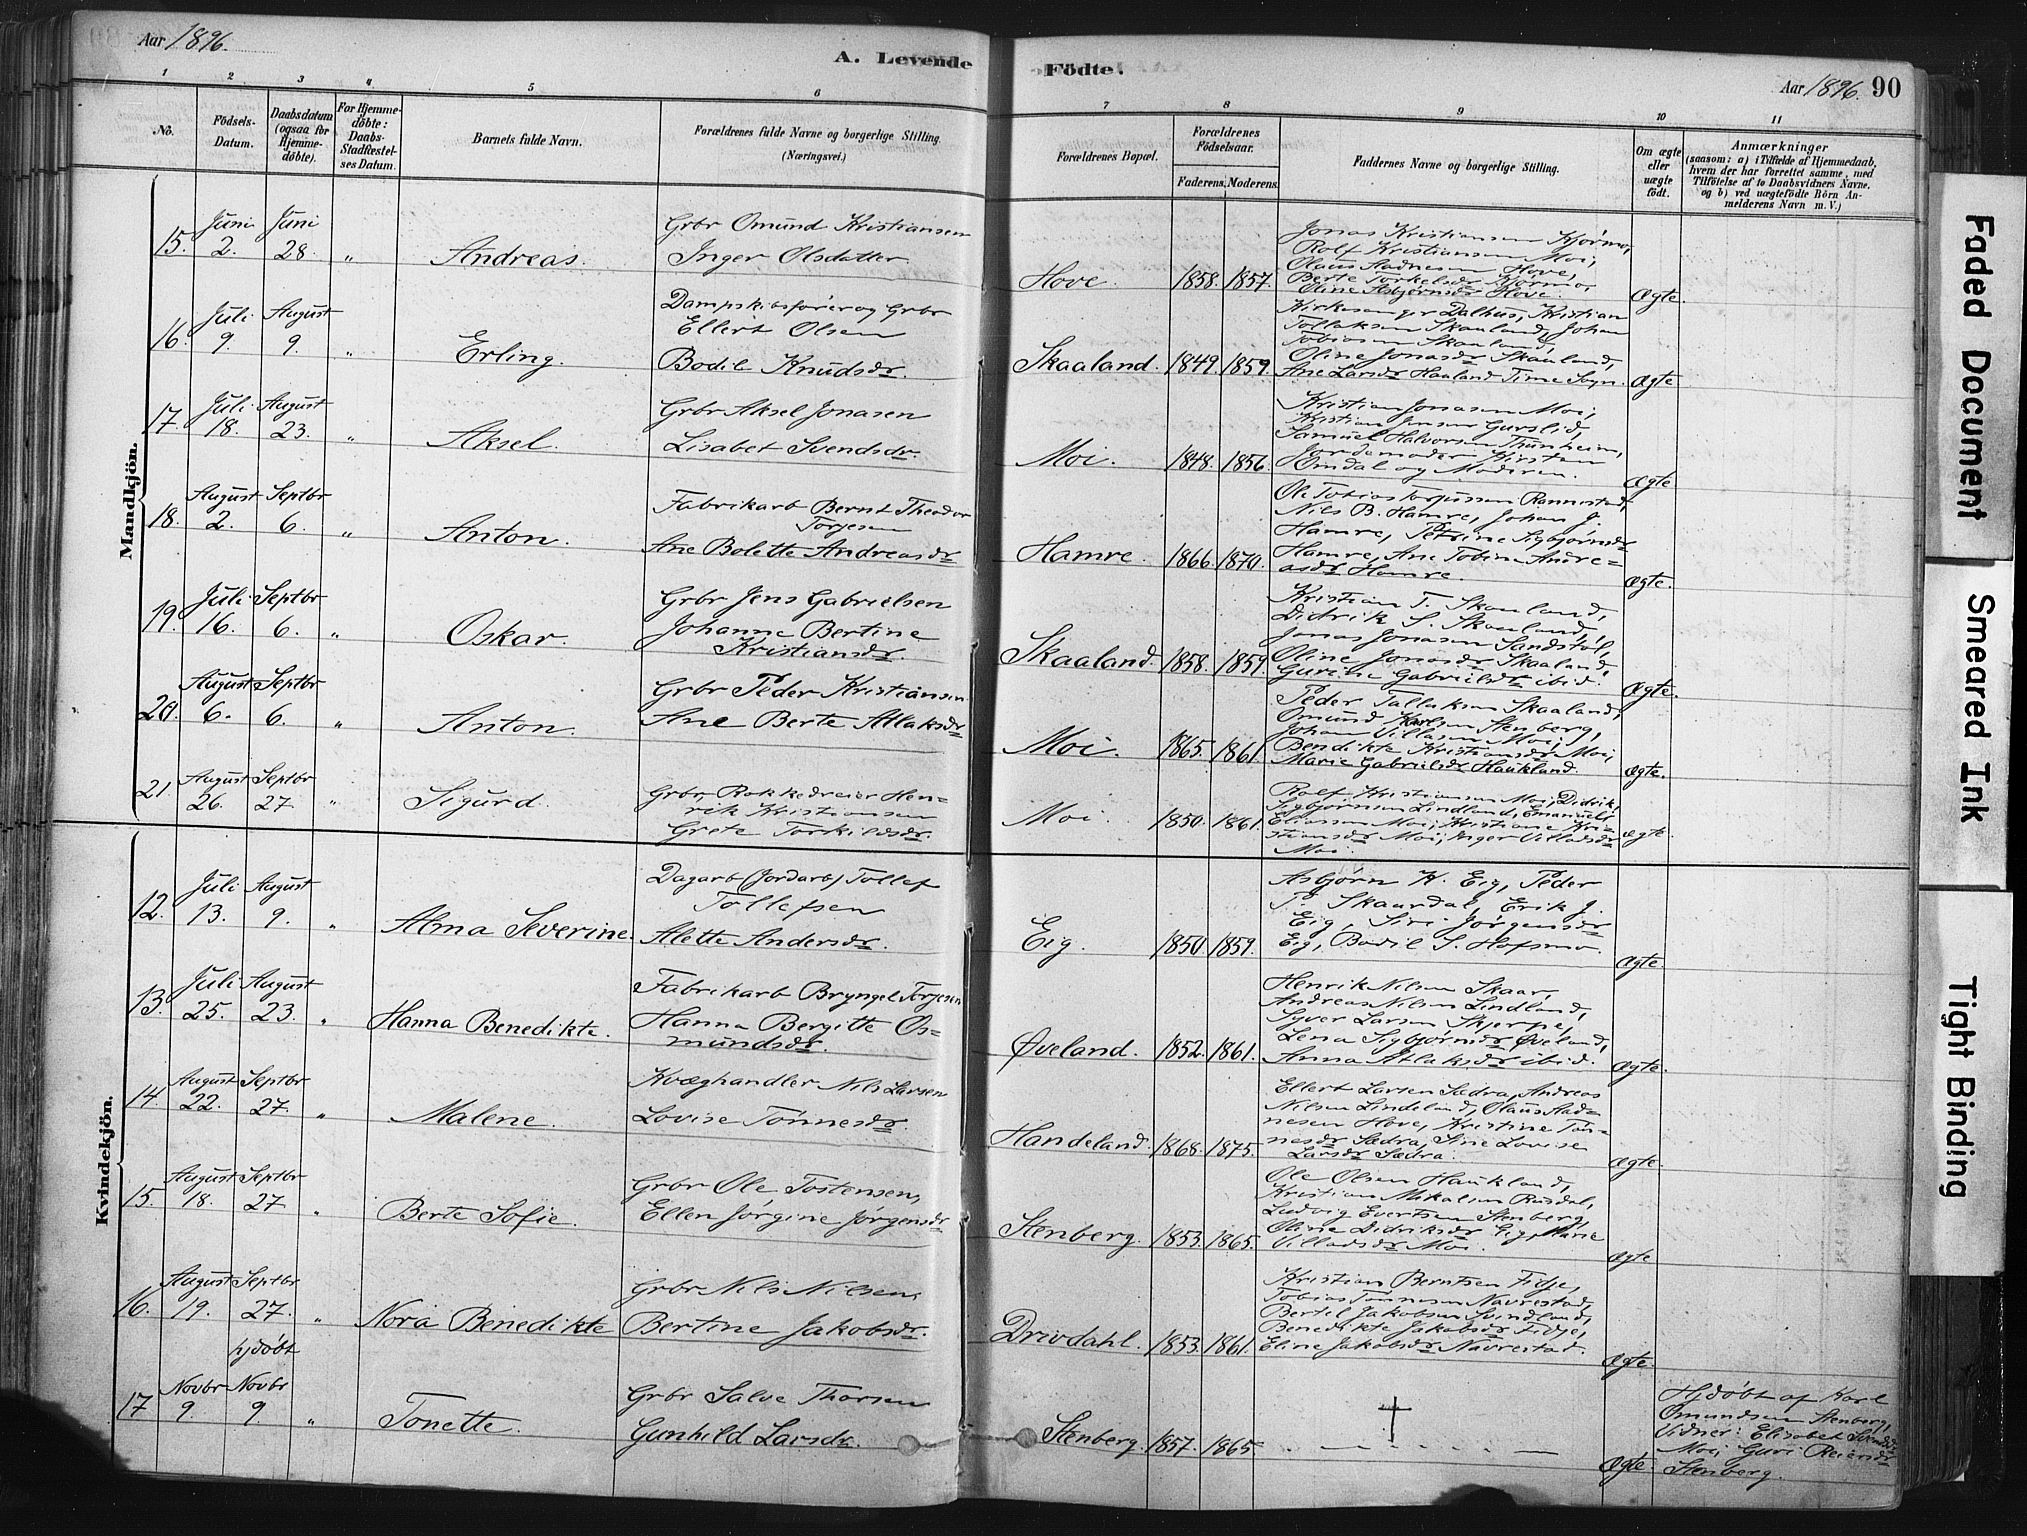 Aar 1896.
A. Levende
Födte.
Aar 1896. 90
1 2 3 4 5 6 7 8 9 10 11
No.
Födsels-
Datum.
Daabsdatum
(ogsaa for
Hjemme-
döbte).
For Hjemme-
döbte:
Daabs-
Stadfæstel-
ses Datum.
Barnets fulde Navn.
Forældrenes fulde Navne og borgerlige Stilling.
(Næringsvei.)
Forældrenes Bopæl.
Forældrenes
Födselsaar.
Faderens. Moderens.
Faddernes Navne og borgerlige Stilling.
Om ægte
eller
uægte
födt.
Anmærkninger
(saasom: a) i Tilfælde af Hjemmedaab,
hvem der har forrettet samme, med
Tilföielse af to Daabsvidners Navne.
og b) ved uægtefödte Börn An-
melderens Navn m. V.)
Mandkjön.
15. Juni 2. Juni 28. " Andreas.
Grbr Omund Kristiansen
Inger Olsdatter
Hove. 1858. 1857.
Jonas Kristiansen Kjørmo,
Rolf Kristiansen Moi,
Olaus Stadnesen Hove,
Berte Torkelsdr Kjørmo,
Oline Asbjørnsdr Hove.
Ægte.
16. Juli 9. August 9. " Erling.
Dampskibsfører og Grbr
Ellert Olsen
Bodil Knudsdr.
Skaaland. 1849. 1859.
Kirkesanger Dalhus, Kristian
Tollaksen Skaaland, Johan
Tobiasen Skaaland,
Oline Jonasdr Skaaland,
Ane Larsdr Haaland Time Sogn.
Ægte
17. Juli 18. August 23. " Aksel.
Grbr Aksel Jonasen
Lisabet Svendsdr.
Moi. 1848. 1856.
Kristian Jonasen Moi,
Kristian Jensen Gurslid,
Samuel Halvorsen Thunheim,
Jordemoder Kirsten
Omdal og Moderen.
Ægte
18. August 2. Septbr 6. " Anton.
Fabrikarb Bernt Theodor
Torjesen
Ane Bolette Andreasdr
Hamre. 1866. 1870.
Ole Tobias Torjussen Rannestad,
Nils B. Hamre, Johan J.
Hamre, Petrine Sigbjørnsdr
Hamre, Ane Tobine Andre=
asdr Hamre.
Ægte.
19. Juli 16. Septbr 6. " Oskar.
Grbr Jens Gabrielsen
Johanne Bertine
Kristiansdr.
Skaaland. 1858. 1859.
Kristian T. Skaaland,
Didrik S. Skaaland,
Jonas Jonasen Sandstøl,
Oline Jonasdr Skaaland,
Gurine Gabrielsdr ibid.
Ægte.
20. August 6. Septbr 6. " Anton.
Grbr Peder Kristiansen
Ane Berte Atlaksdr
Moi. 1865. 1861.
Peder Tallaksen Skaaland,
Omund Karlsen Stenberg,
Johan Villasen Moi,
Bendikte Kristiansdr Moi,
Marie Gabrielsdr Haukland.
Ægte.
21 August 26. Septbr 27 " Sigurd.
Grbr, Rokkedreier Hen=
rik Kristiansen
Grete Torkildsdr.
Moi. 1850. 1861.
Rolf Kristiansen Moi, Didrik
Sigbjørnsen Lindland, Emanuel
Eliassen Moi, Kristiane Kri=
stiansdr Moi, Inger Villadsdr
Moi.
Ægte
Kvindekjön.
12. Juli 13. August 9. " Alma Severine.
Dagarb (Jordarb) Tollef
Tollefsen
Alette Andersdr.
Eig. 1850. 1859.
Asbjørn K. Eig, Peder
P. Skaardal, Erik J.
Eig, Siri Jørgensdr
Eig, Bodil S. Hofsmo.
Ægte.
13. Juli 25. August 23. " Hanna Benedikte.
Fabrikarb Bryngel Torjesen
Hanna Bergitte Os=
mundsdr.
Øveland. 1852. 1861.
Henrik Nilsen Skaar,
Andreas Nilsen Lindland,
Syver Larsen Skjerpe,
Lena Sigbjørnsdr Øveland,
Anna Atlaksdr ibid.
Ægte.
14. August 22. Septbr 27. " Malene.
Kvæghandler Nils Larsen
Lovise Tønnesdr.
Handeland. 1868. 1875.
Ellert Larsen Sædra, Andreas
Nilsen Lindeland, Olaus Stad=
nesen Hove, Kristine Tøn=
nesdr Sædra, Sine Lovise
Larsdr Sædra.
Ægte.
15. August 18. Septbr 27 " Berte Sofie.
Grbr Ole Tostensen,
Ellen Jørgine Jørgensdr
Stenberg. 1853. 1865.
Ole Olsen Haukland,
Kristian Mikalsen Rusdal,
Ludvig Evertsen Stenberg,
Oline Didriksdr Eig, Marie
Villadsdr Moi.
Ægte
16. August 19. Septbr 27. " Nora Benedikte
Grbr Nils Nilsen,
Bertine Jakobsdr.
Drivdahl. 1853. 1861.
Kristian Berntsen Fidje,
Tobias Tønnesen Navrestad,
Bertil Jakobsen Svindland,
Benedikte Jakobsdr Fidje,
Eline Jakobsdr Navrestad.
Ægte.
hjdøbt
17 Novbr 9. Novbr 9 " Tonette.
Grbr Salve Thorsen
Gunhild Larsdr.
Stenberg. 1857. 1865.
Ægte.
Hjdøbt af Karl
Omundsen Stenberg,
Vidner: Elisabet Svendsdr
Moi, Guri Reiersdr
Stenberg.
Faded Document
Smeared Ink
Tight Binding